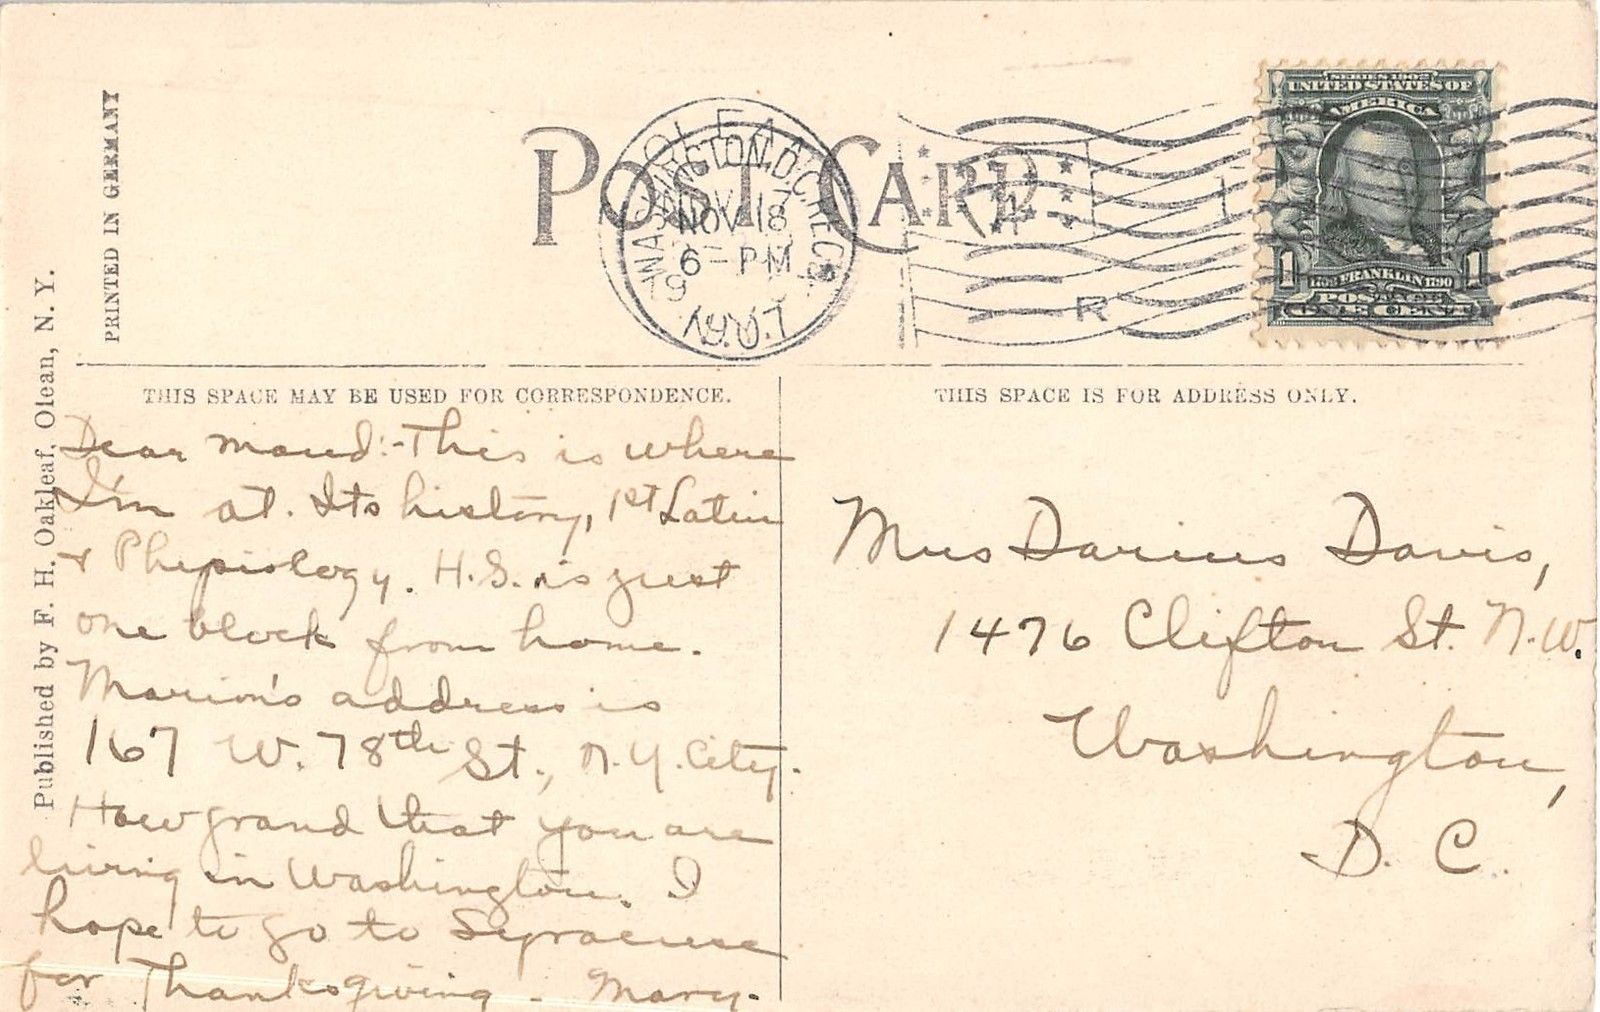 PRINTED IN GERMANY
Published by F. H. Oakleaf, Olean, N. Y.
POST CARD
WASHINGTON, D.C. REC'D
NOV 18
6-PM
SERIES 1902
UNITED STATES OF
AMERICA
FRANKLIN
POSTAGE
1 1
ONE CENT
R
THIS SPACE MAY BE USED FOR CORRESPONDENCE.
Dear Maud:-This is where
I'm at. Its history, 1st Latin
& Physiology. H.S. is just
one block from home.
Marion's address is
167 W. 78th St., N.Y. City.
How grand that you are
living in Washington. I
hope to go to Syracuse
for Thanksgiving. Mary.
THIS SPACE IS FOR ADDRESS ONLY.
Mrs Darius Davis,
1476 Clifton St. N.W.
Washington,
D. C.